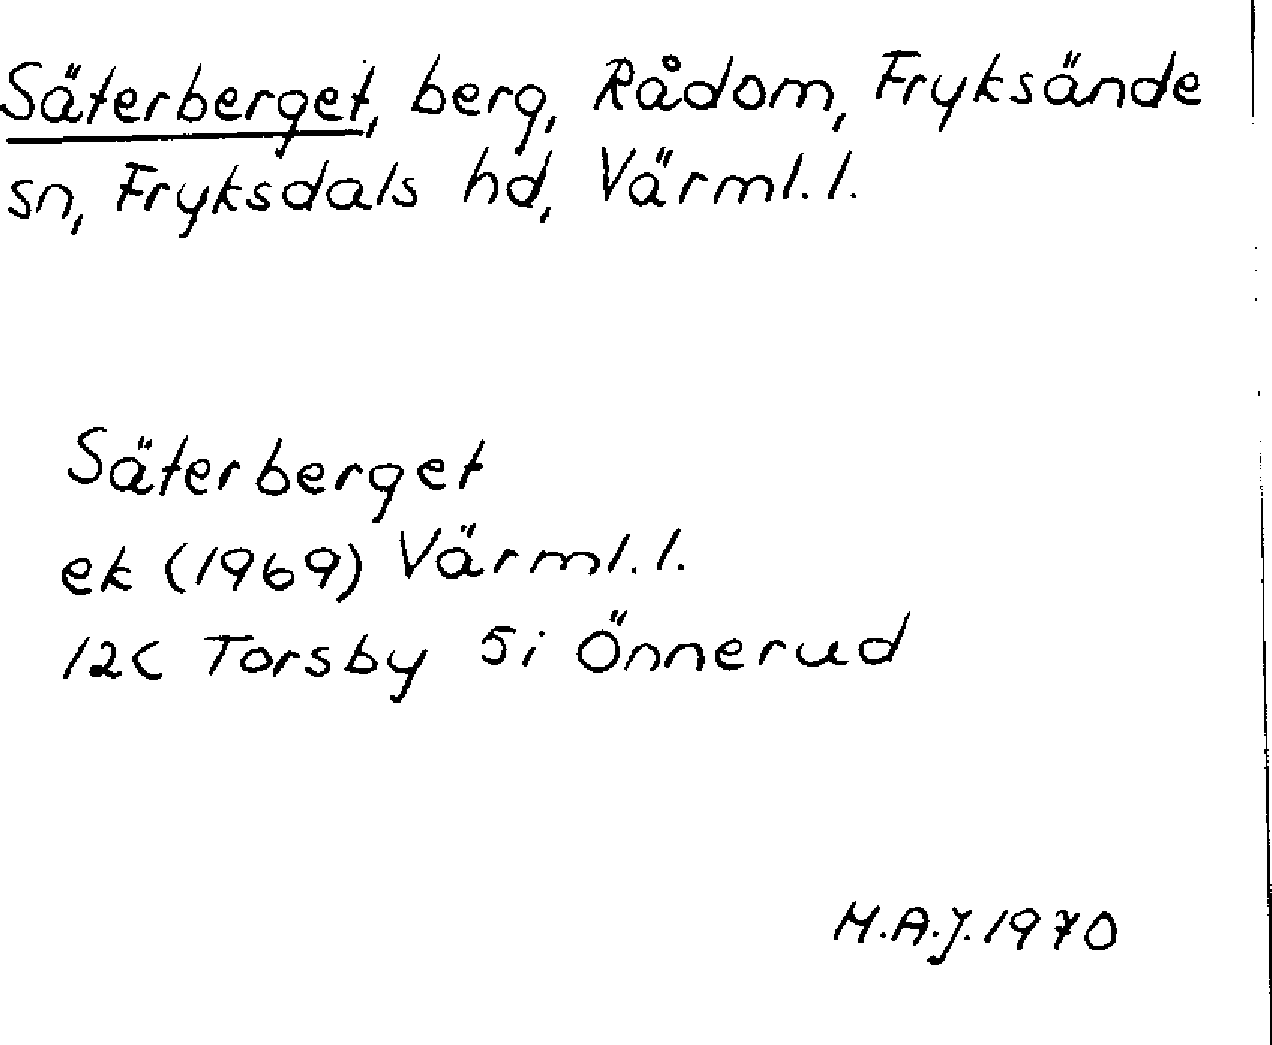 Säterberget, berg, Rådom, Fryksände
sn, Fryksdals hd, Värml. l.
Säterberget
ek (1969) Värml. l.
12C Torsby 5i Önnerud
M.A.J. 1970